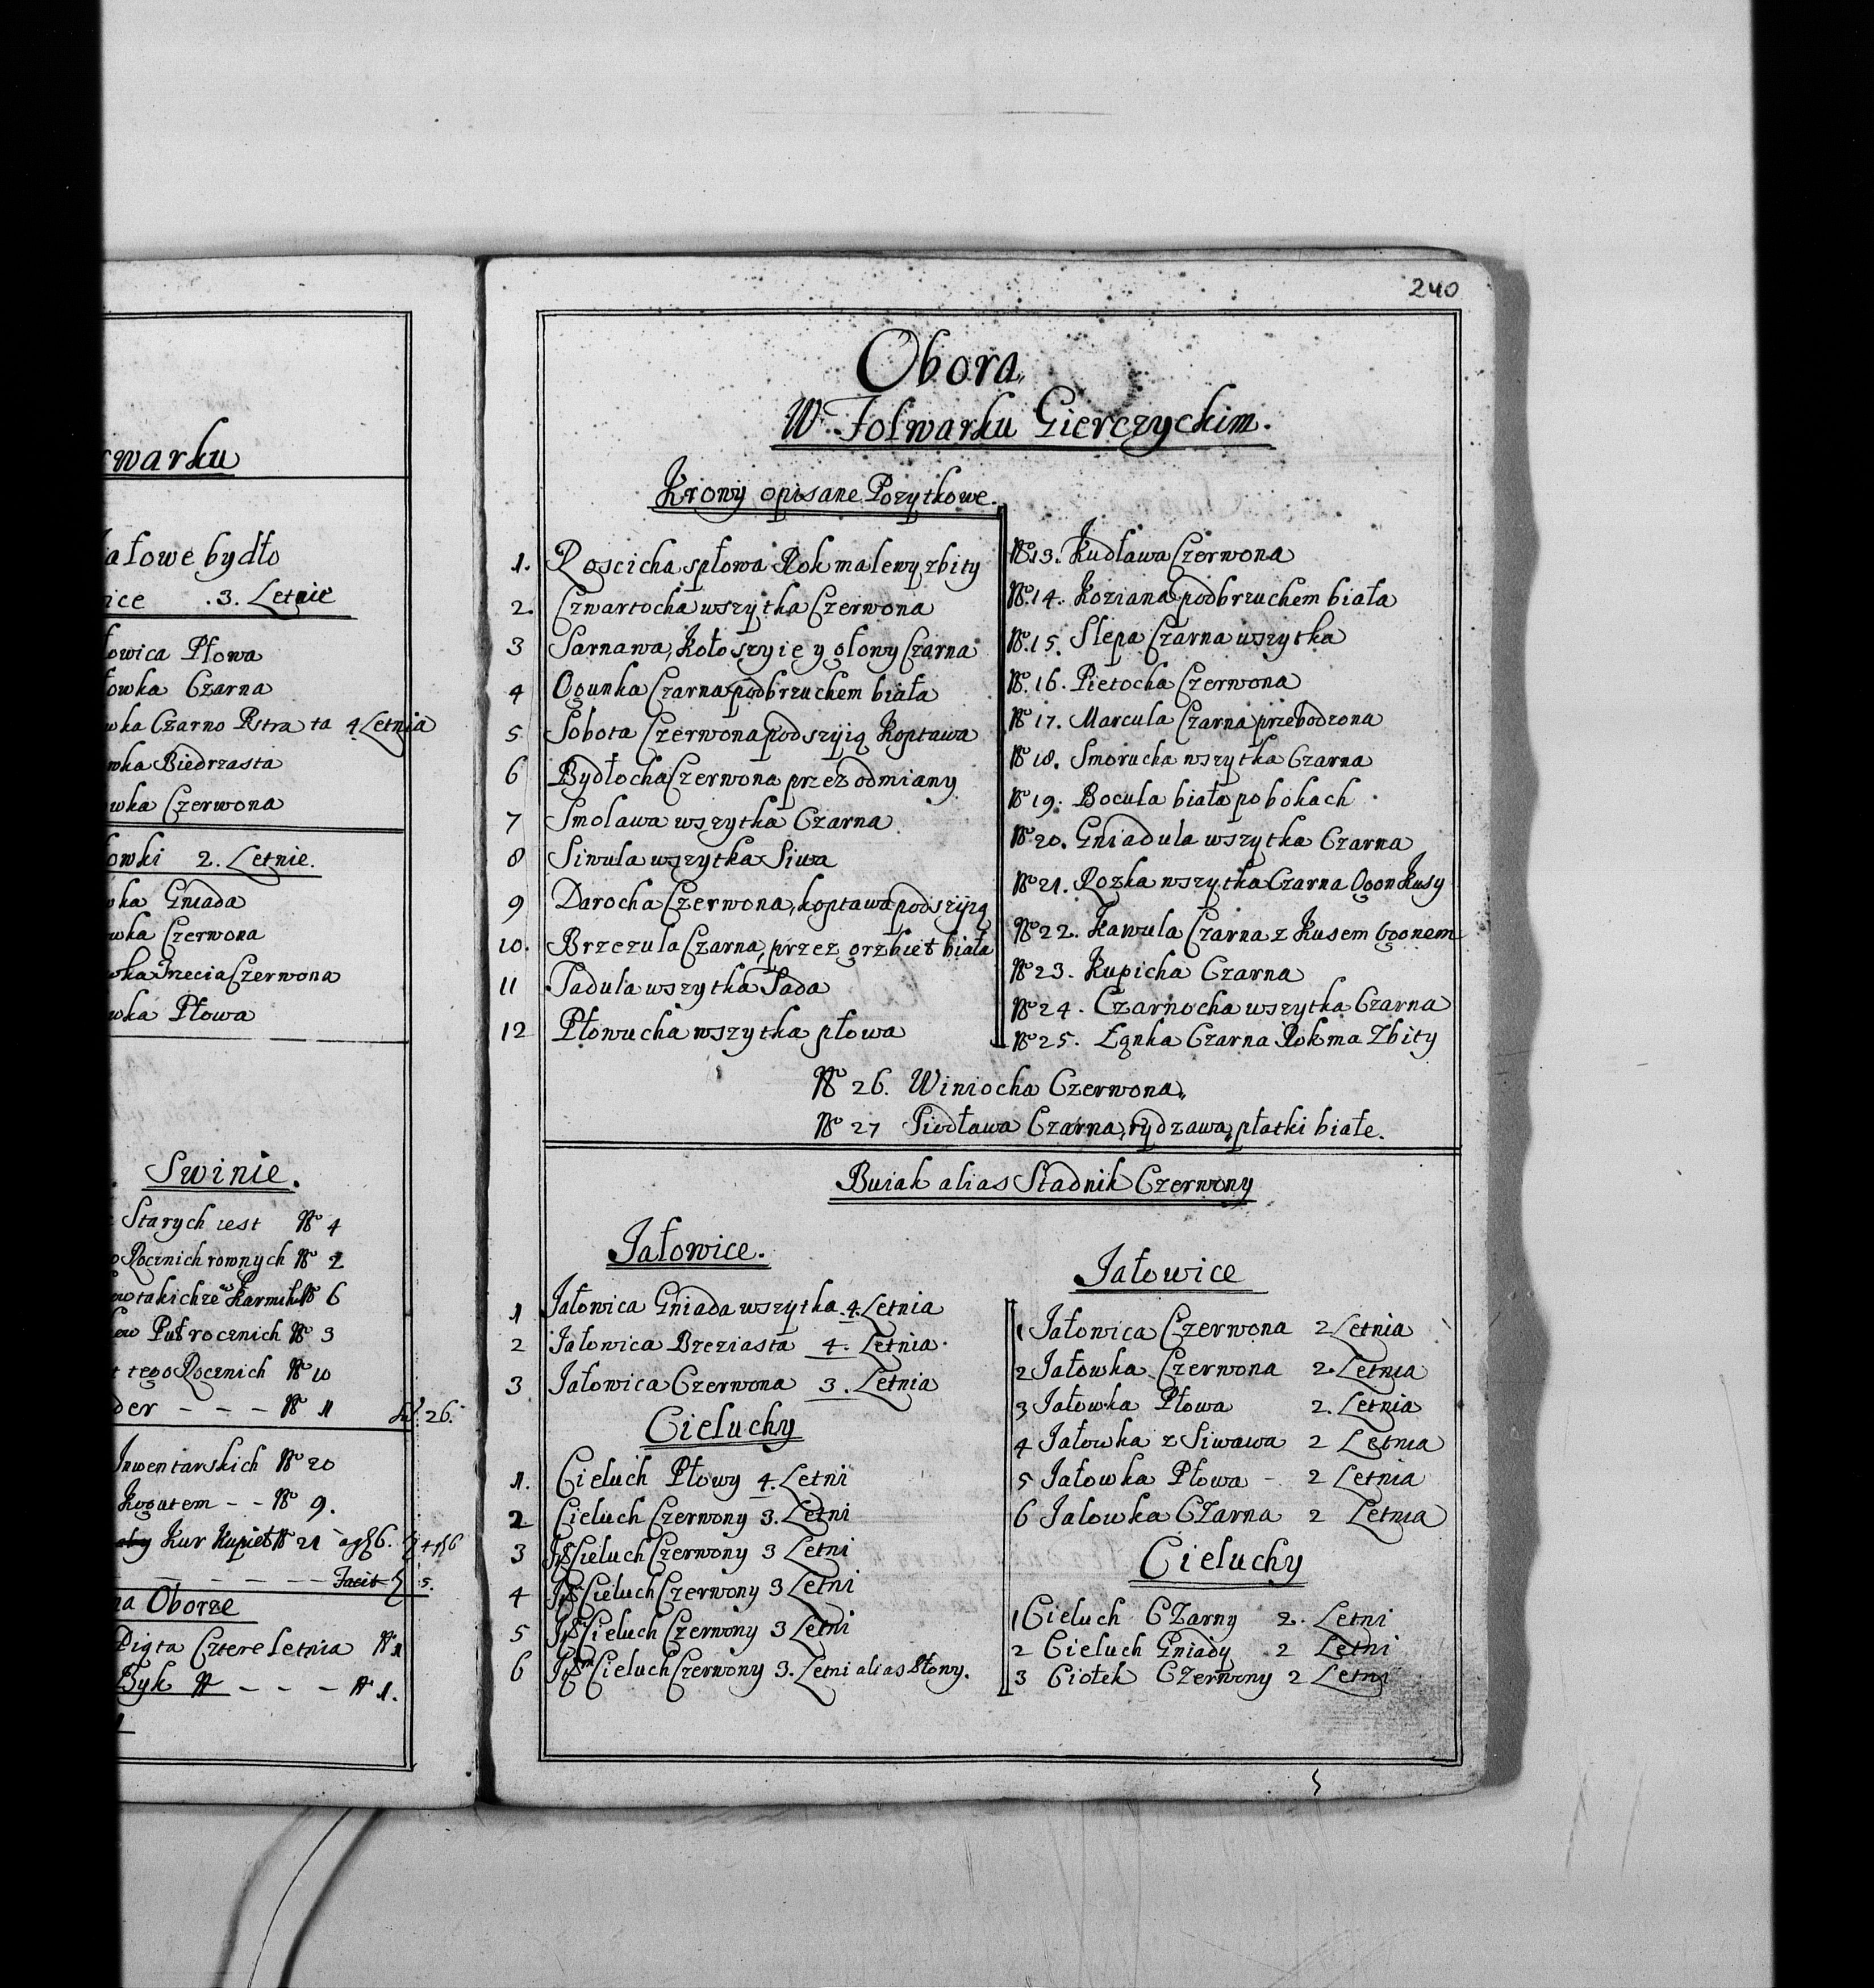 warku
atowe bydło
ice .3. Letnie
towica Płowa
towka Czarna
wka Czarno Pstra ta 4 Letnia
wka Biedrzasta
wka Czerwona
owki 2. Letnie.
wka Gniada
wka Czerwona
wka Trzecia Czerwona
wka Płowa
Swinie.
Starych iest No 4
Rocznich rownych No 2
takichze w Karmik No 6
ow Puł rocznich No 3
tego Rocznich No 10
der - - - No 1
26.
Inwentarskich No 20
Kogutem - - No 9.
Kur Kupieł No 21
Facit 5.
na Oborze
Piąta Cztere Letnia No 1
Byk - - - No 1.
240
Obora
W Folwarku Gierczyckim.
Krowy opisane Pozytkowe.
1. Roscicha spłowa Rok ma lewy zbity
2. Czwartocha wszytka Czerwona
3 Sarnawa, Koło szyie y głowy Czarna
4 Ogunka Czarna pod brzuchem biała
5 Sobota Czerwona pod szyią Koptawa
6 Bydłocha Czerwona przez odmiany
7 Smolawa wszytka Czarna
8 Siwula wszytka Siwa
9 Darocha Czerwona, koptawa pod szyią
10. Brzezula Czarna, przez grzbiet biała
11 Sadula wszytka Sada
12 Płowucha wszytka płowa
No 13. Kudława Czerwona
No 14. Koziana pod brzuchem biała
No 15. Slepa Czarna wszytka
No 16. Pietocha Czerwona
No 17. Marcula Czarna przebodzona
No 18. Smorucha wszytka Czarna
No 19. Bocula biała po bokach
No 20. Gniadula wszytka Czarna
No 21. Rozka wszytka Czarna Ogon Kusy
No 22. Kawula Czarna z Kusem Ogonem
No 23. Kupicha Czarna
No 24. Czarnocha wszytka Czarna
No 25. Łąnka Czarna Rok ma Zbity
No 26. Winiocha Czerwona
No 27 Siodława Czarna, rydzawa, płatki białe.
Buiak alias Stadnik Czerwony
Jałowice.
1 Jałowica Gniada wszytka 4. Letnia
2 Jałowica Breziasta 4. Letnia.
3 Jałowica Czerwona 3. Letnia
Cieluchy
1. Cieluch Płowy 4. Letni
2 Cieluch Czerwony 3. Letni
3 Cieluch Czerwony 3 Letni
4 Cieluch Czerwony 3 Letni
5 Cieluch Czerwony 3 Letni
6 Cieluch Czerwony 3. Letni alias Płowy.
Jałowice
1 Jałowica Czerwona 2 Letnia
2 Jałowka Czerwona 2. Letnia
3 Jałowka Płowa 2. Letnia
4 Jałowka z Siwawa 2 Letnia
5 Jałowka Płowa - 2 Letnia
6 Jalowka CZarna 2 Letnia
Cieluchy
1 Cieluch CZarny 2. Letni
2 Cieluch Gniady 2 Letni
3 Ciołek CZerwony 2 Letni